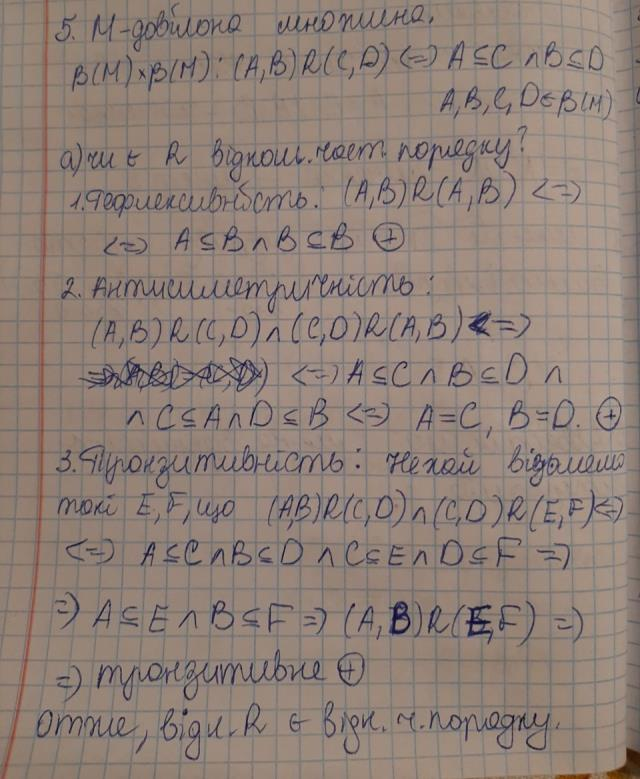 5. М-довільна множина.
β(М)×β(М): (A,B)R(C,D) <=> A⊆C ∧ B⊆D
A,B,C,D∈β(М)
а) чи є R віднош. част. порядку?
1. Рефлексивність: (A,B)R(A,B) <=>
<=> A⊆B ∧ B⊆B ⊕
2. Антисиметричність:
(A,B)R(C,D)∧(C,D)R(A,B) <=>
<=> A⊆C ∧ B⊆D ∧
∧ C⊆A ∧ D⊆B <=> A=C, B=D. ⊕
3. Транзитивність: Нехай візьмемо
такі E,F, що (A,B)R(C,D)∧(C,D)R(E,F) <=>
<=> A⊆C ∧ B⊆D ∧ C⊆E ∧ D⊆F =>
=> A⊆E ∧ B⊆F => (A,B)R(E,F) =>
=> транзитивне ⊕
Отже, відн. R є відн. ч. порядку.